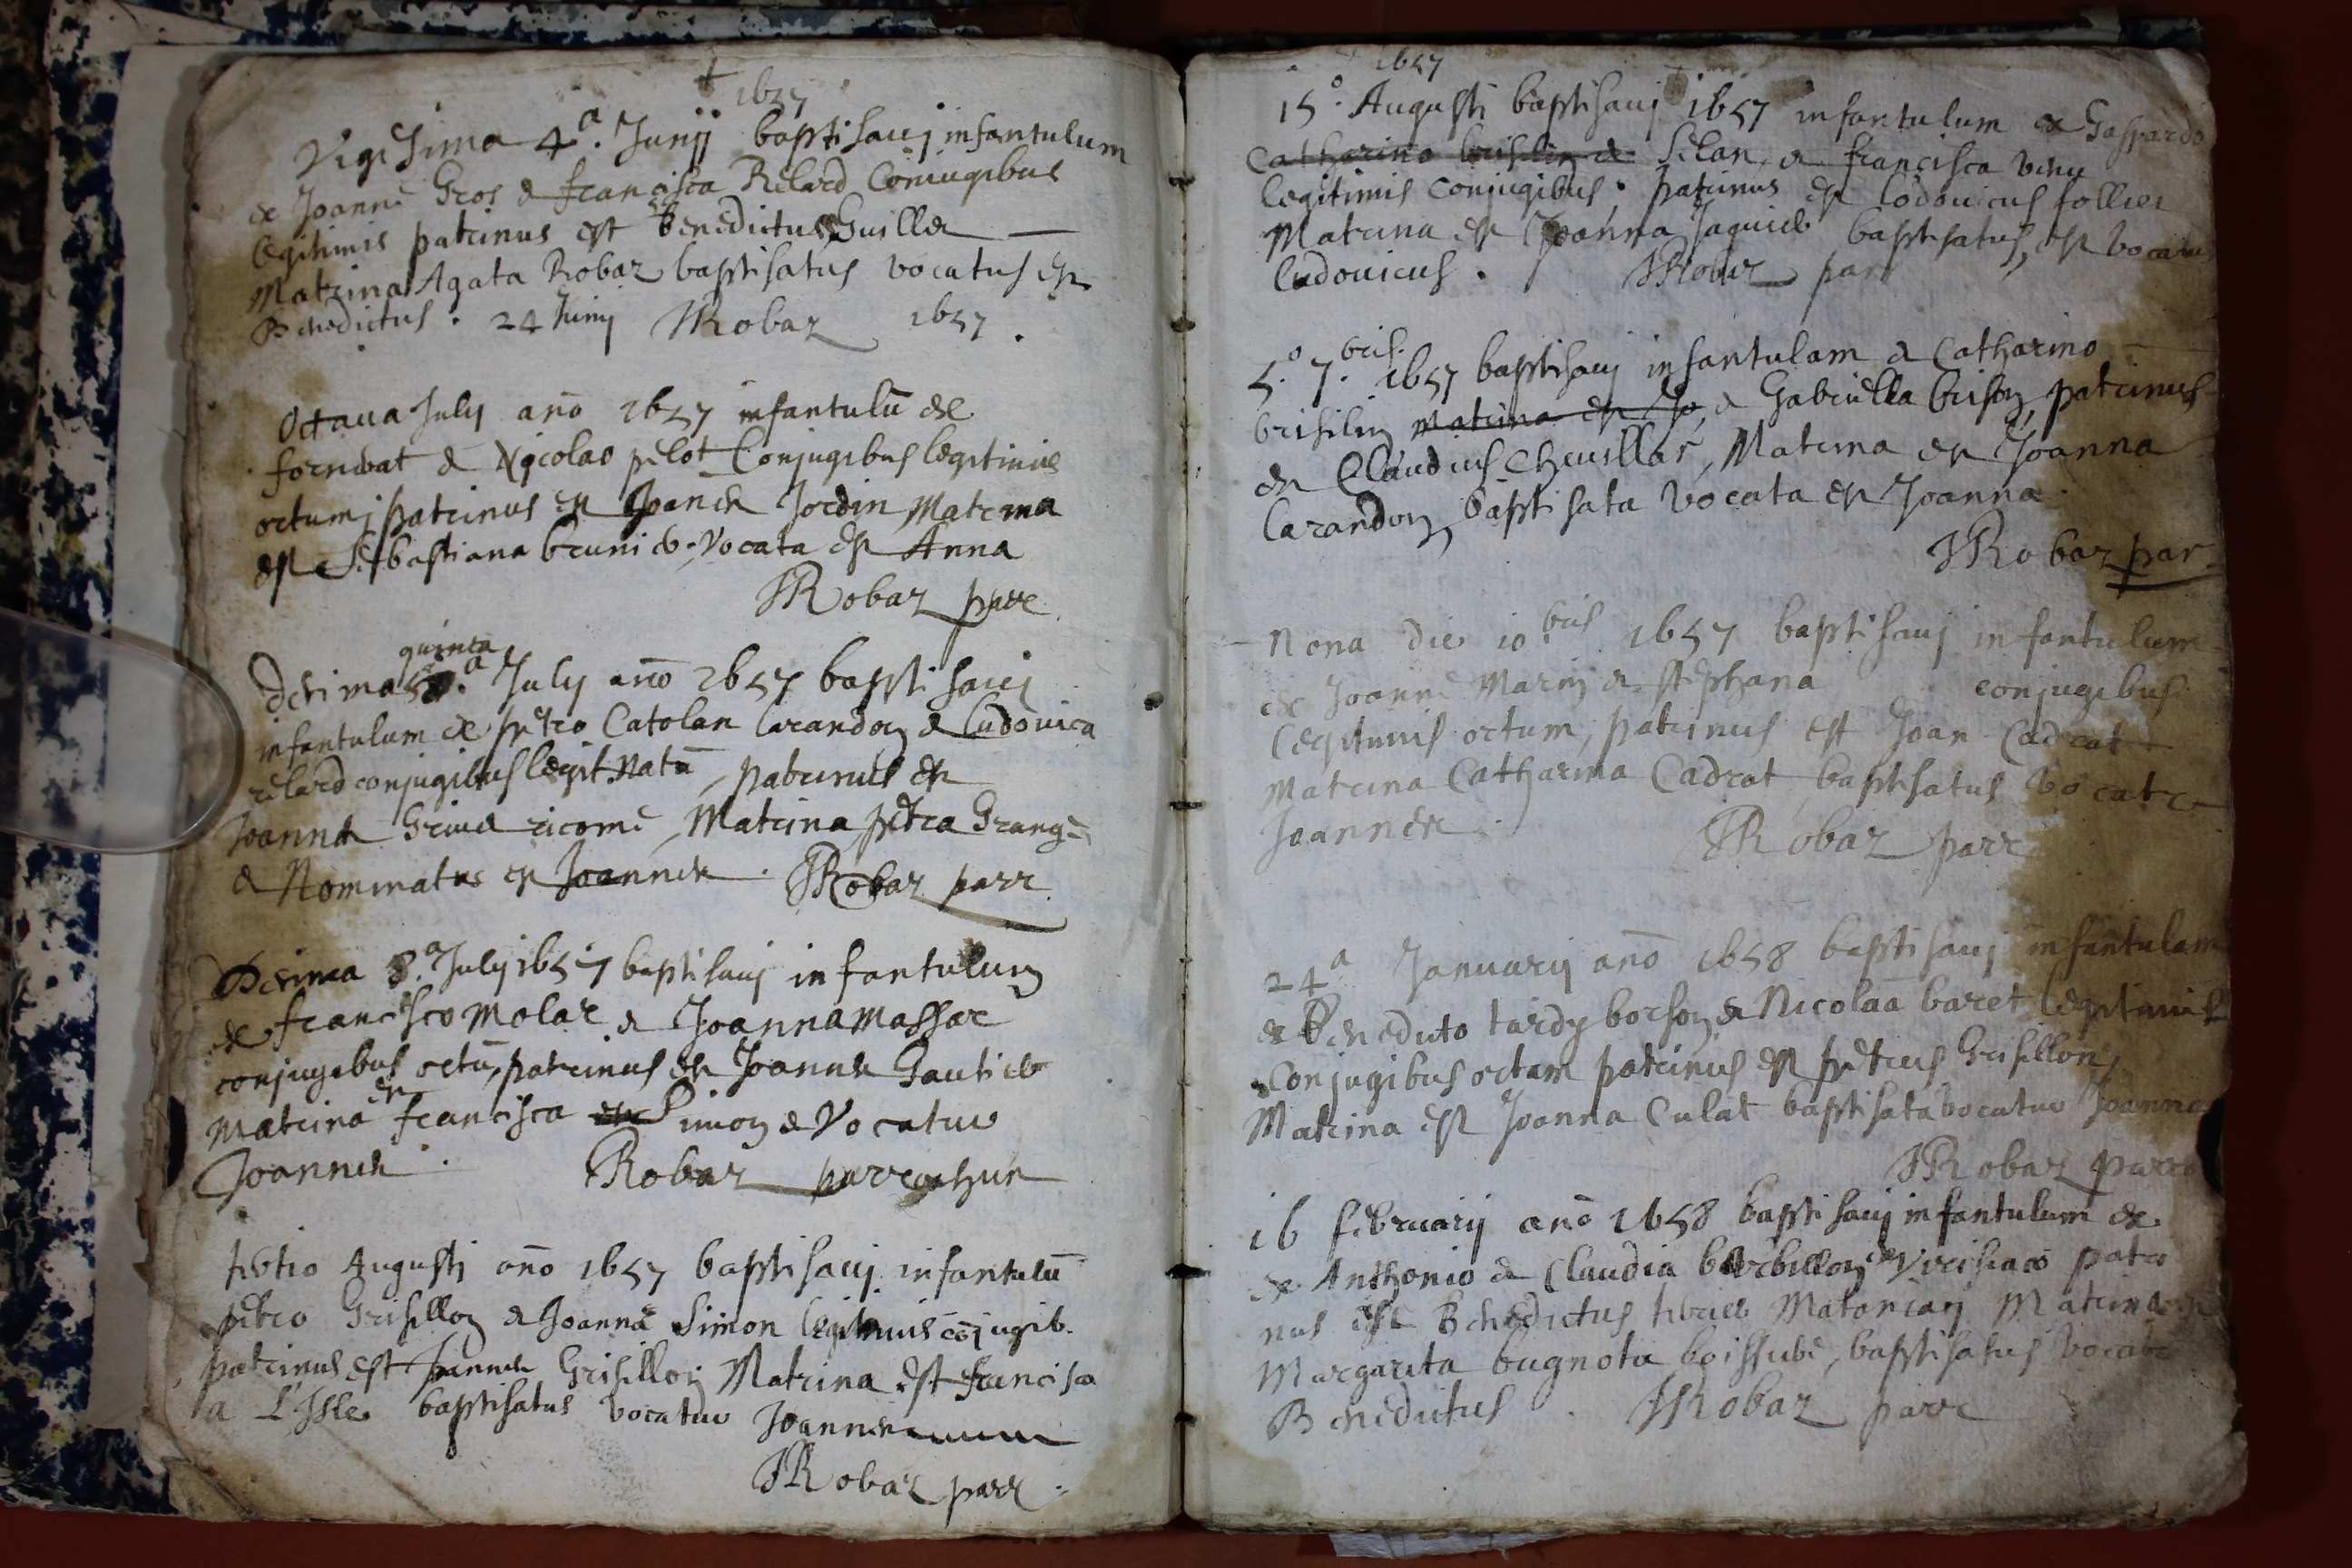 1657
Vigesima 4.a Junij baptisavj infantulum
ex Joanne Gros & francisca Relard Coniugibus
legitimis patrinus est benedictus Guilliet
Matrina Agata Robaz baptisatus vocatus est
Benedictus . 24 Junij JRobaz 1657 .
Octava July ano 1657 infantulū ex
& Nicolao pelot Conjugibus legitimis
ortum patrinus est Joannes Jordin Matrina
est Sebastiana brunier vocata est Anna
JRobaz parr
quinta
Decima 5.a July ano 1657 baptisavj
infantulum ex petro Catolan Carandon & Ludovica
relard conjugibus legit natū, patrinus est
Joannes Matrina petra Grange
& Nominatus est Joannes . JRobaz parr
Decima 8.a July 1657 baptisavj infantulum
ex francisco Molar & Joanna Massar
conjugibus ortū, patrinus est Joannes Gautier
est
Matrina francisca est Simon & Vocatur
Joannes . Robaz parrochus
tertio Augustj ano 1657 baptisavj infantulū
petro Grisillon & Joanna Simon legitimis cōjugib.
patrinus est Joannes Grisillon Matrina est francisca
a L'Isle baptisatus vocatur Joannes
JRobaz parr .
1657
15.o Augusti baptisavj 1657 infantulum ex Gaspardo
Catharino brisilin & Silan, & francisca
legitimis Conjugibus . patrinus est lodovicus follier
Matrina est Joanna Jaquier baptisatus est vocatus
ludovicus . JRobaz parr
5.o 7.bris 1657 baptisavj infantulam a Catharino
brisilin Matrina est Jo, & Gabriella brison, patrinus
est Claudius Chevillar, Matrina est Joanna
Carandon baptisata vocata est Joanna
JRobaz par
Nona die 10.bris 1657 baptisavj infantulum
ex Joanne Marin & stephana conjugibus
legitimis ortum, patrinus est Joan Cadrat
Matrina Catharina Cadrat baptisatus vocatr
Joannes . JRobaz parr
24.a Januarij ano 1658 baptisavj infantulam
ex Benedicto tardy borson & Nicolaa baret legitimis
Conjugibus ortam patrinus est petrus Grisillon,
Matrina est Joanna Culat baptisata vocatur Joanna
JRobaz parro
16 februarij ano 1658 baptisavj infantulum ex
ex Anthonio & Claudia barbillon de Virisiaco patri
nus est Benedictus Matrina est
Margarita bugnota baptisatus vocatr
Benedictus . JRobaz parr